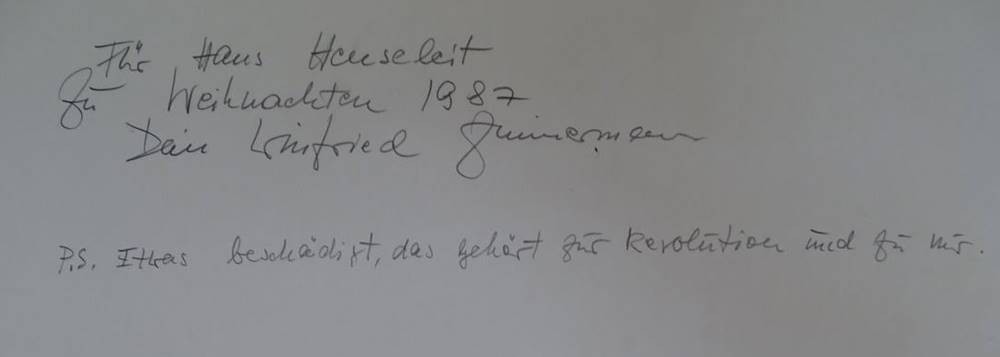 Für Hans Henseleit
Zu Weihnachten 1987
Dein Winfried Zimmermann
P.S. Etwas beschädigt, das gehört zur Revolution und zu mir.